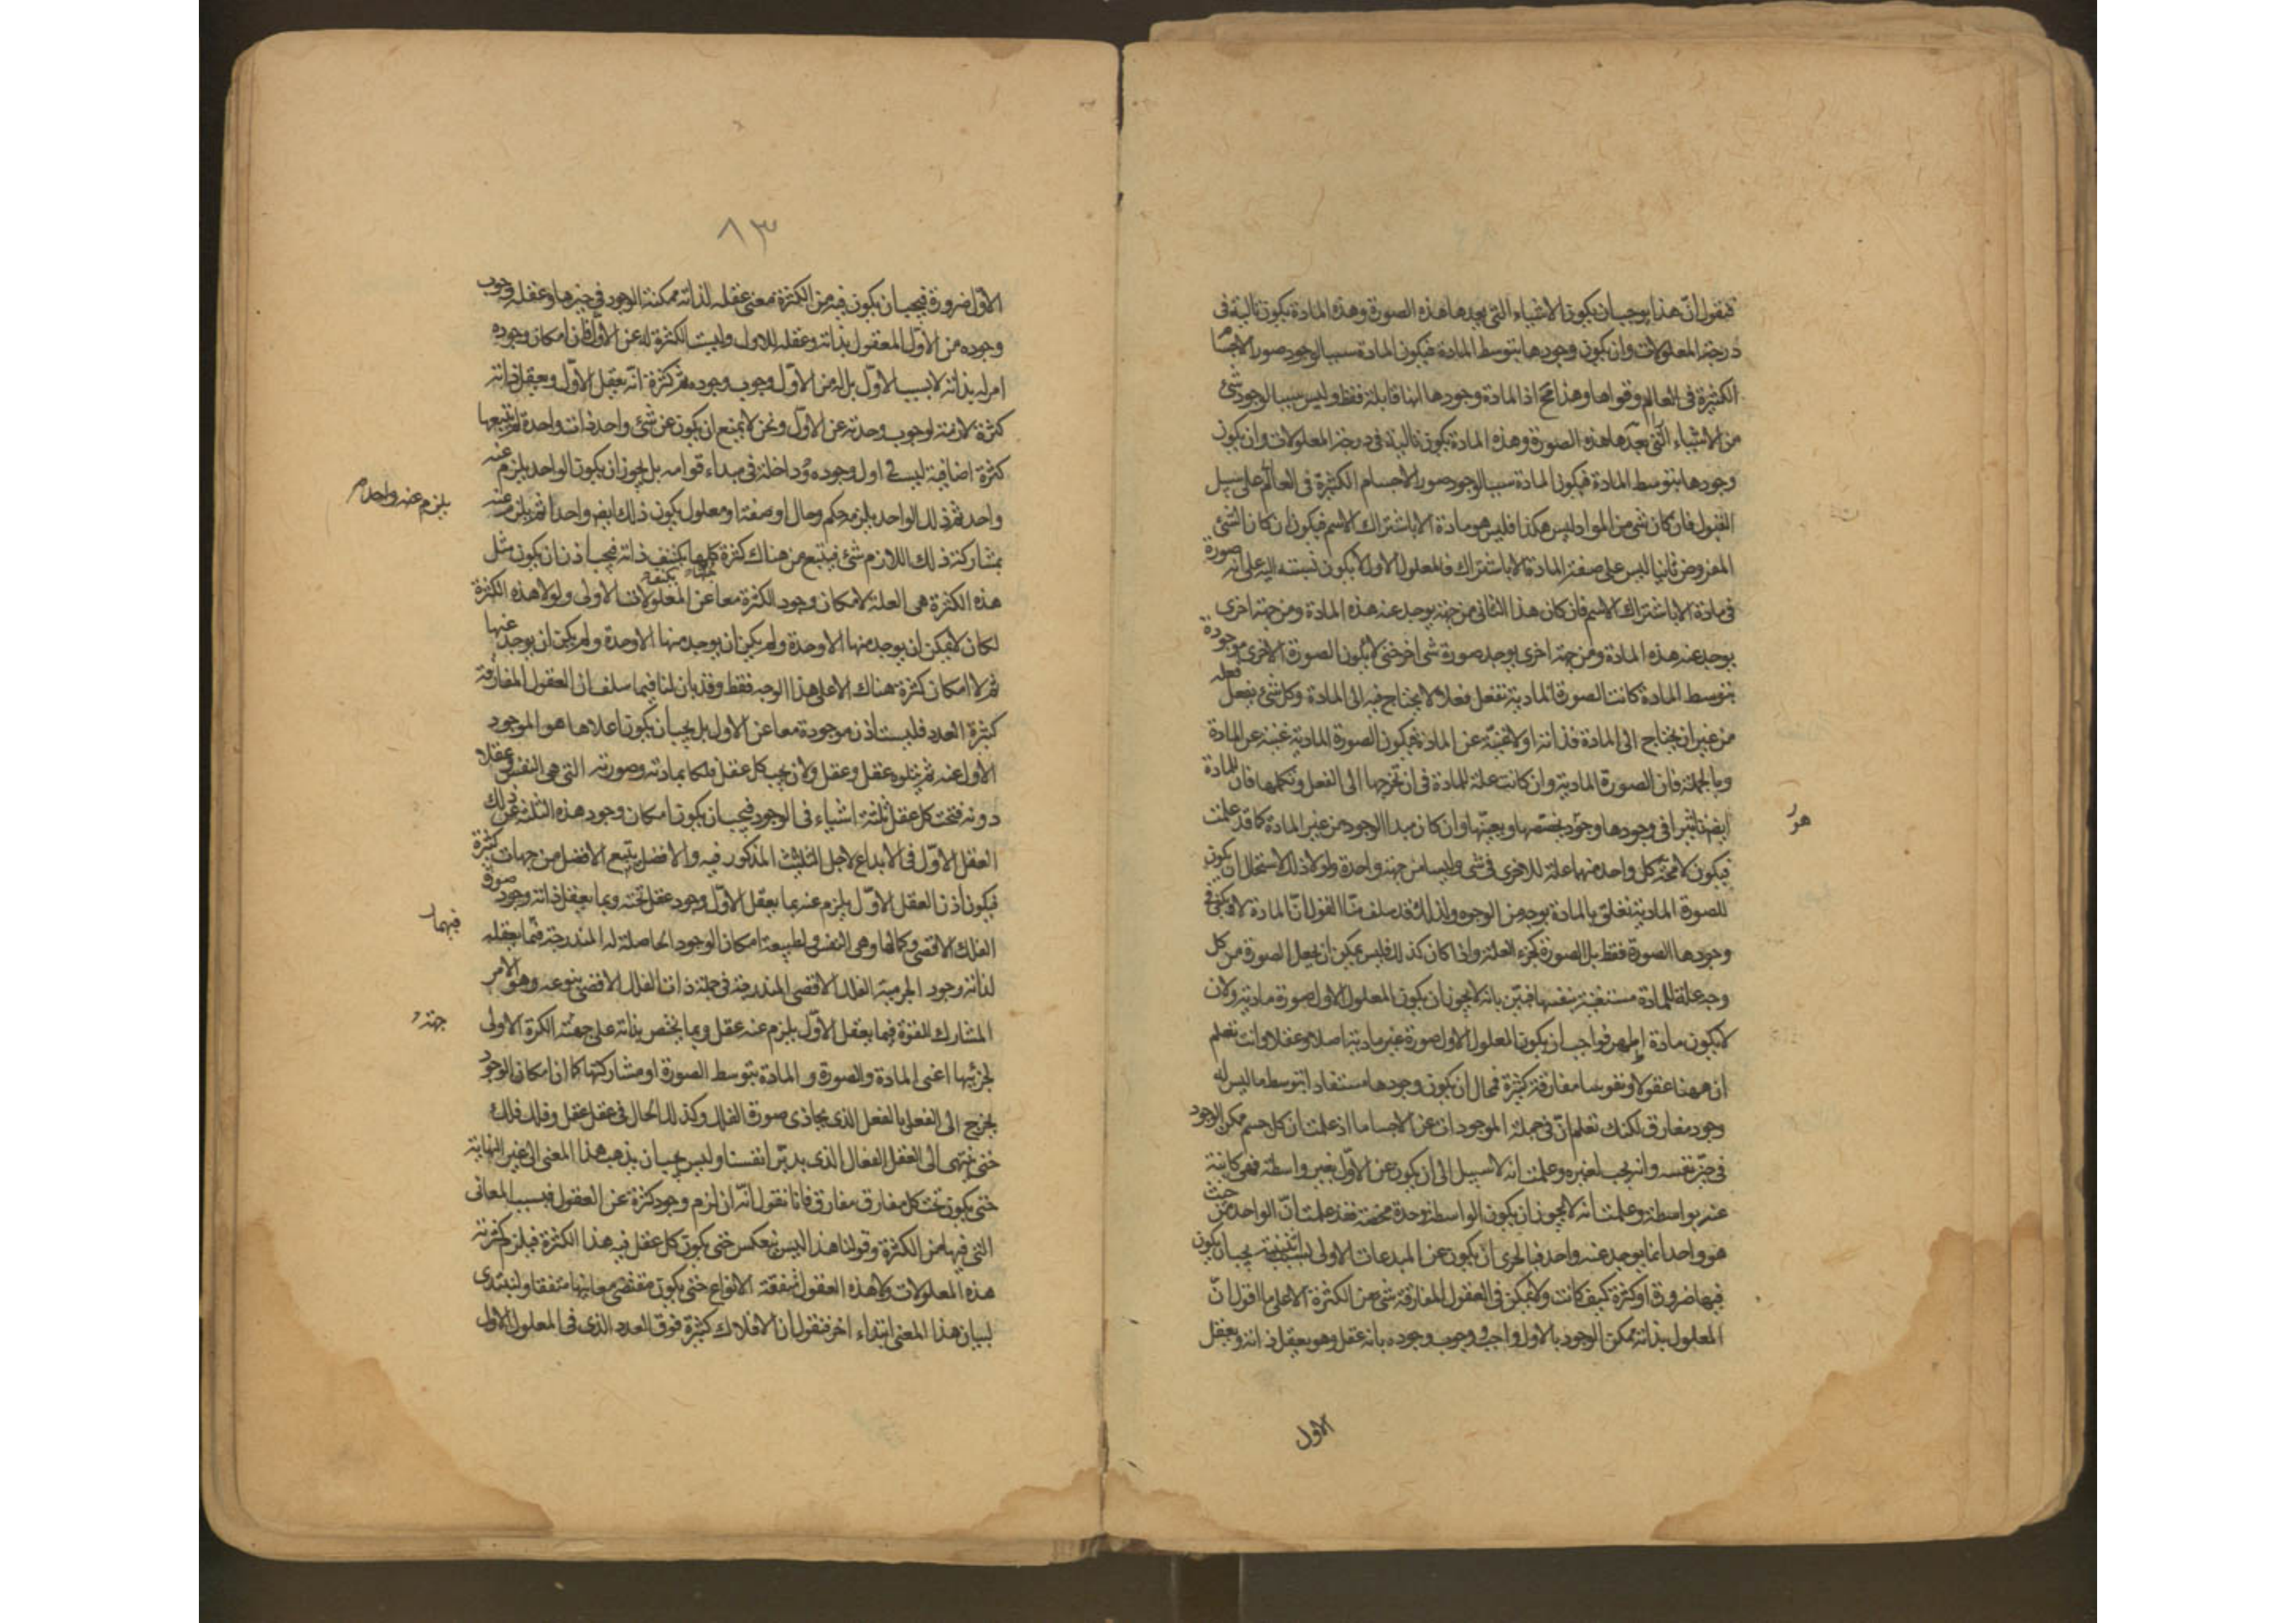 ثم نقول ان هذا يوجب ان يكون الاشياء التى بعدها هذه الصورة وهذه المادة يكون تالية فى
درجة المعلولات وان يكون وجودها بتوسط المادة فيكون المادة سببا لوجود صور الاجسام
الكثيرة فى العالم وقواها وهذا مح اذ المادة وجودها انها قابلة فقط وليس سببا لوجود شئ
من الاشياء التى بعدها هذه الصورة وهذه المادة يكون تالية فى درجة المعلولات وان يكون
وجودها بتوسط المادة فيكون المادة سببا لوجود صور الاجسام الكثيرة فى العالم على سبيل
القبول فان كان شئ من المواد ليس هكذا فليس هو مادة الا باشتراك الاسم فيكون ان كان الشئ
المفروض ثانيا ليس على صفة المادة الا باشتراك فالمعلول الاول لا يكون نسبته اليه على انه صورة
فى مادة الا باشتراك الاسم فان كان هذا الثانى من جهة يوجد عنه هذه المادة ومن جهة اخرى
يوجد عنه هذه المادة ومن جهة اخرى يوجد صورة شئ اخر حتى لا يكون الصورة الاخرى موجودة
بتوسط المادة كانت الصورة المادية تفعل فعلا لا يحتاج فيه الى المادة وكل شئ يفعل فعله
من غير ان يحتاج الى المادة فذاته اولا غنية عن المادة فيكون الصورة المادية غنية عن المادة
وبالجملة فان الصورة المادية وان كانت علة للمادة فى ان تخرجها الى الفعل وتكملها فان للمادة
ايضا تاثيرا فى وجودها وهو تخصصها وتعينها وان كان مبدا الوجود من غير المادة كما قد علمت
فيكون لا محة كل واحد منهما علة للاخرى فى شئ وليسا من جهة واحدة ولولا ذلك لاستحال ان يكون
للصورة المادية تعلق بالمادة بوجه من الوجوه ولذلك قد سلف منا القول ان المادة لا يكفى فى
وجودها الصورة فقط بل الصورة كجزء العلة واذا كان كذلك فليس يمكن ان يجعل الصورة من كل
وجه علة للمادة مستغنية بنفسها فبين بانه لا يجوز ان يكون المعلول الاول صورة مادية ولان
لا يكون مادة اظهر فواجب ان يكون المعلول الاول صورة غير مادية اصلا وعقلا وانت تعلم
ان ههنا عقولا ونفوسا مفارقة كثيرة فمحال ان يكون وجودها مستفادا بتوسط ما ليس له
وجود مفارق لكنك تعلم ان فى جملة الموجودات عن الاجساما اذ علمت ان كل جسم ممكن الوجود
فى حيز نفسه وانه يجب لغيره وعلمت انه لا سبيل الى ان يكون عن الاول بغير واسطة فهى كاينة
عنه بواسطة وعلمت انه لا يجوز ان يكون الواسطة وحدة محضة فقد علمت ان الواحد من حيث
هو واحد انما يوجد عنه واحد فبالحرى ان يكون عن المبدعات الاولى بسبب اثنينية يجب ان يكون
فيها ضرورة او كثرة كيف كانت ولا يمكن فى العقول المفارقة شئ من الكثرة الا على ما اقول ان
المعلول بذاته ممكن الوجود بالاول واجب ووجوب وجوده بانه عقل وهو يعقل ذاته ويعقل
الاول
هو
٨٣
الاول ضرورة فيجب ان يكون فيه من الكثرة معنى عقله لذاته ممكنة الوجود فى حيزها وعقله وجوب
وجوده من الاول المعقول بذاته وعقله للاول وليست الكثرة له عن الاول فان امكان وجوده
امر له بذاته لا بسبب الاول بل له من الاول وجوب وجوده ثم كثرة انه يعقل الاول ويعقل ذاته
كثرة لازمة لوجوب وحدته عن الاول ونحن لا نمنع ان يكون عن شئ واحد ذات واحدة ثم يتبعها
كثرة اضافية ليست فى اول وجوده وداخلة فى مبداء قوامه بل يجوز ان يكون الواحد يلزم عنه
واحد ثم ذلك الواحد يلزمه حكم وحال او صفة او معلول يكون ذلك ايضا واحدا ثم يلزم عنه
بمشاركة ذلك اللازم شئ فيتبع من هناك كثرة كلها يكتنف ذاته فيجب اذن ان يكون مثل
هذه الكثرة هى العلة لامكان وجود الكثرة معا عن المعلولات الاولى ولولا هذه الكثرة
لكان لا يمكن ان يوجد منها الا وحدة ولم يكن ان يوجد منها الا وحدة ولم يكن ان يوجد عنها
ثم لا امكان كثرة هناك الا على هذا الوجه فقط وقد بان لنا فيما سلف ان العقول المفارقة
كثيرة العدد فليست اذن موجودة معا عن الاول بل يجب ان يكون اعلاها هو الموجود
الاول عنه ثم يتلوه عقل وعقل ولان تحت كل عقل فلكا بمادته وصورته التى هى النفس وعقلا
دونه فتحت كل عقل ثلثة اشياء فى الوجود فيجب ان يكون امكان وجود هذه الثلثة عن ذلك
العقل الاول فى الابداع لاجل التثليث المذكور فيه والافضل يتبع الافضل من جهات كثيرة
فيكون اذن العقل الاول يلزم عنه بما يعقل الاول وجود عقل تحته وبما يعقل ذاته وجود صورة
الفلك الاقصى وكمالها وهى النفس ولطبيعة امكان الوجود الحاصلة له المندرجة فيما يعقله
لذاته وجود الجرمية الفلك الاقصى المندرجة فى جملة ذات الفلك الاقصى بنوعه وهو الامر
المشارك للقوة فيما يعقل الاول يلزم عنه عقل وبما يختص بذاته على جهته الكرة الاولى
بجزئيها اعنى المادة والصورة و المادة بتوسط الصورة او مشاركتها كما ان امكان الوجود
يخرج الى الفعل بالفعل الذى يحاذى صورة الفلك وكذلك الحال فى عقل عقل وفلك فلك
حتى ينتهى الى العقل الفعال الذى يدبر انفسنا وليس يجب ان يذهب هذا المعنى الى غير النهاية
حتى يكون تحت كل مفارق مفارق فانا نقول انه ان لزم وجود كثرة عن العقول فبسبب المعانى
التى فيها من الكثرة وقولنا هذا ليس ينعكس حتى يكون كل عقل فيه هذا الكثرة فيلزم كثرته
هذه المعلولات ولا هذه العقول متفقة الانواع حتى يكون مقتضى معانيها متفقا ولنبتدى
لبيان هذا المعنى ابتداء اخر فنقول ان الافلاك كثيرة فوق العدد الذى فى المعلول الاول
يلزم عنه واحد
فيهما
جهة